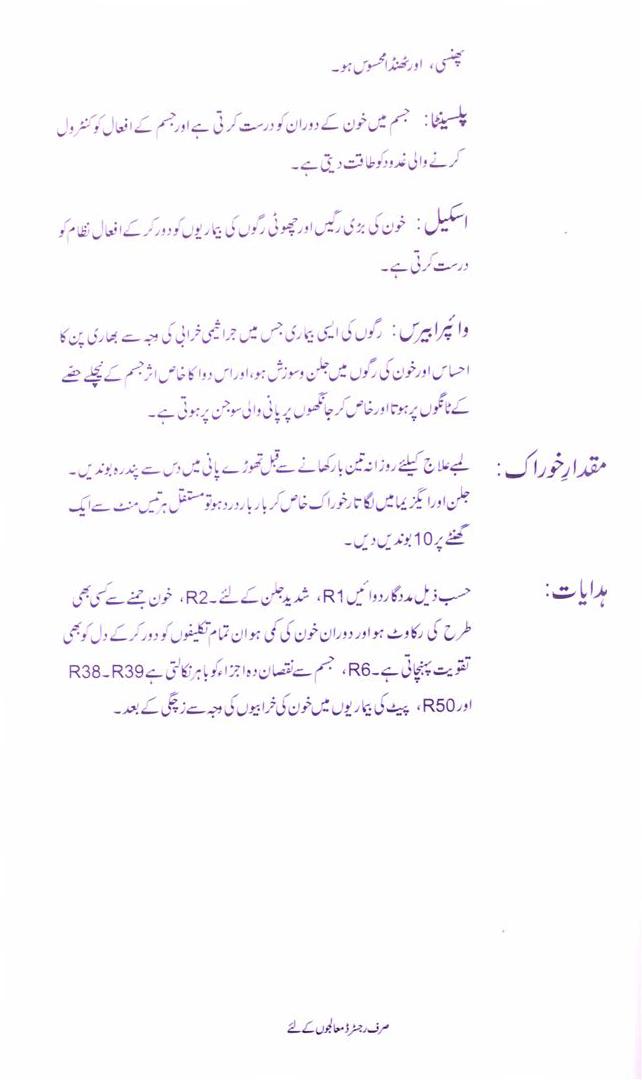 پھنسی، اور ٹھنڈا محسوس ہو۔
پلسینٹا: جسم میں خون کے دوران کو درست کرتی ہے اور جسم کے افعال کو کنٹرول
کرنے والی غدود کو طاقت دیتی ہے۔
اسکیل: خون کی بڑی رگیں اور چھوٹی رگوں کی بیماریوں کو دور کر کے افعال نظام کو
درست کرتی ہے۔
وائپرابیرس: رگوں کی ایسی بیماری جس میں جراثیمی خرابی کی وجہ سے بھاری پن کا
احساس اور خون کی رگوں میں جلن و سوزش ہو، اور اس دوا کا خاص اثر جسم کے نچلے حصّے
کے ٹانگوں پر ہوتا اور خاص کر جانگھوں پر پانی والی سوجن پر ہوتی ہے۔
مقدارِ خوراک: لمبے علاج کیلئے روزانہ تین بار کھانے سے قبل تھوڑے پانی میں دس سے پندرہ بوندیں۔
جلن اور ایگزیما میں لگاتار خوراک خاص کر بار بار درد ہو تو مستقل ہر تیس منٹ سے ایک
گھنٹے پر 10 بوندیں دیں۔
ہدایات: حسب ذیل مددگار دوائیں R1، شدید جلن کے لئے۔ R2، خون جمنے سے کسی بھی
طرح کی رکاوٹ ہو اور دوران خون کی کمی ہو ان تمام تکلیفوں کو دور کر کے دل کو بھی
تقویت پہنچاتی ہے۔ R6، جسم سے نقصان دہ اجزاء کو باہر نکالتی ہے R38۔R39
اور R50، پیٹ کی بیماریوں میں خون کی خرابیوں کی وجہ سے زچگی کے بعد۔
صرف رجسٹرڈ معالجوں کے لئے